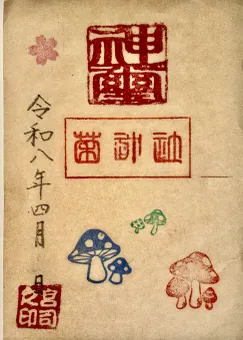 菌神社
令和八年四月 日
宮司之印